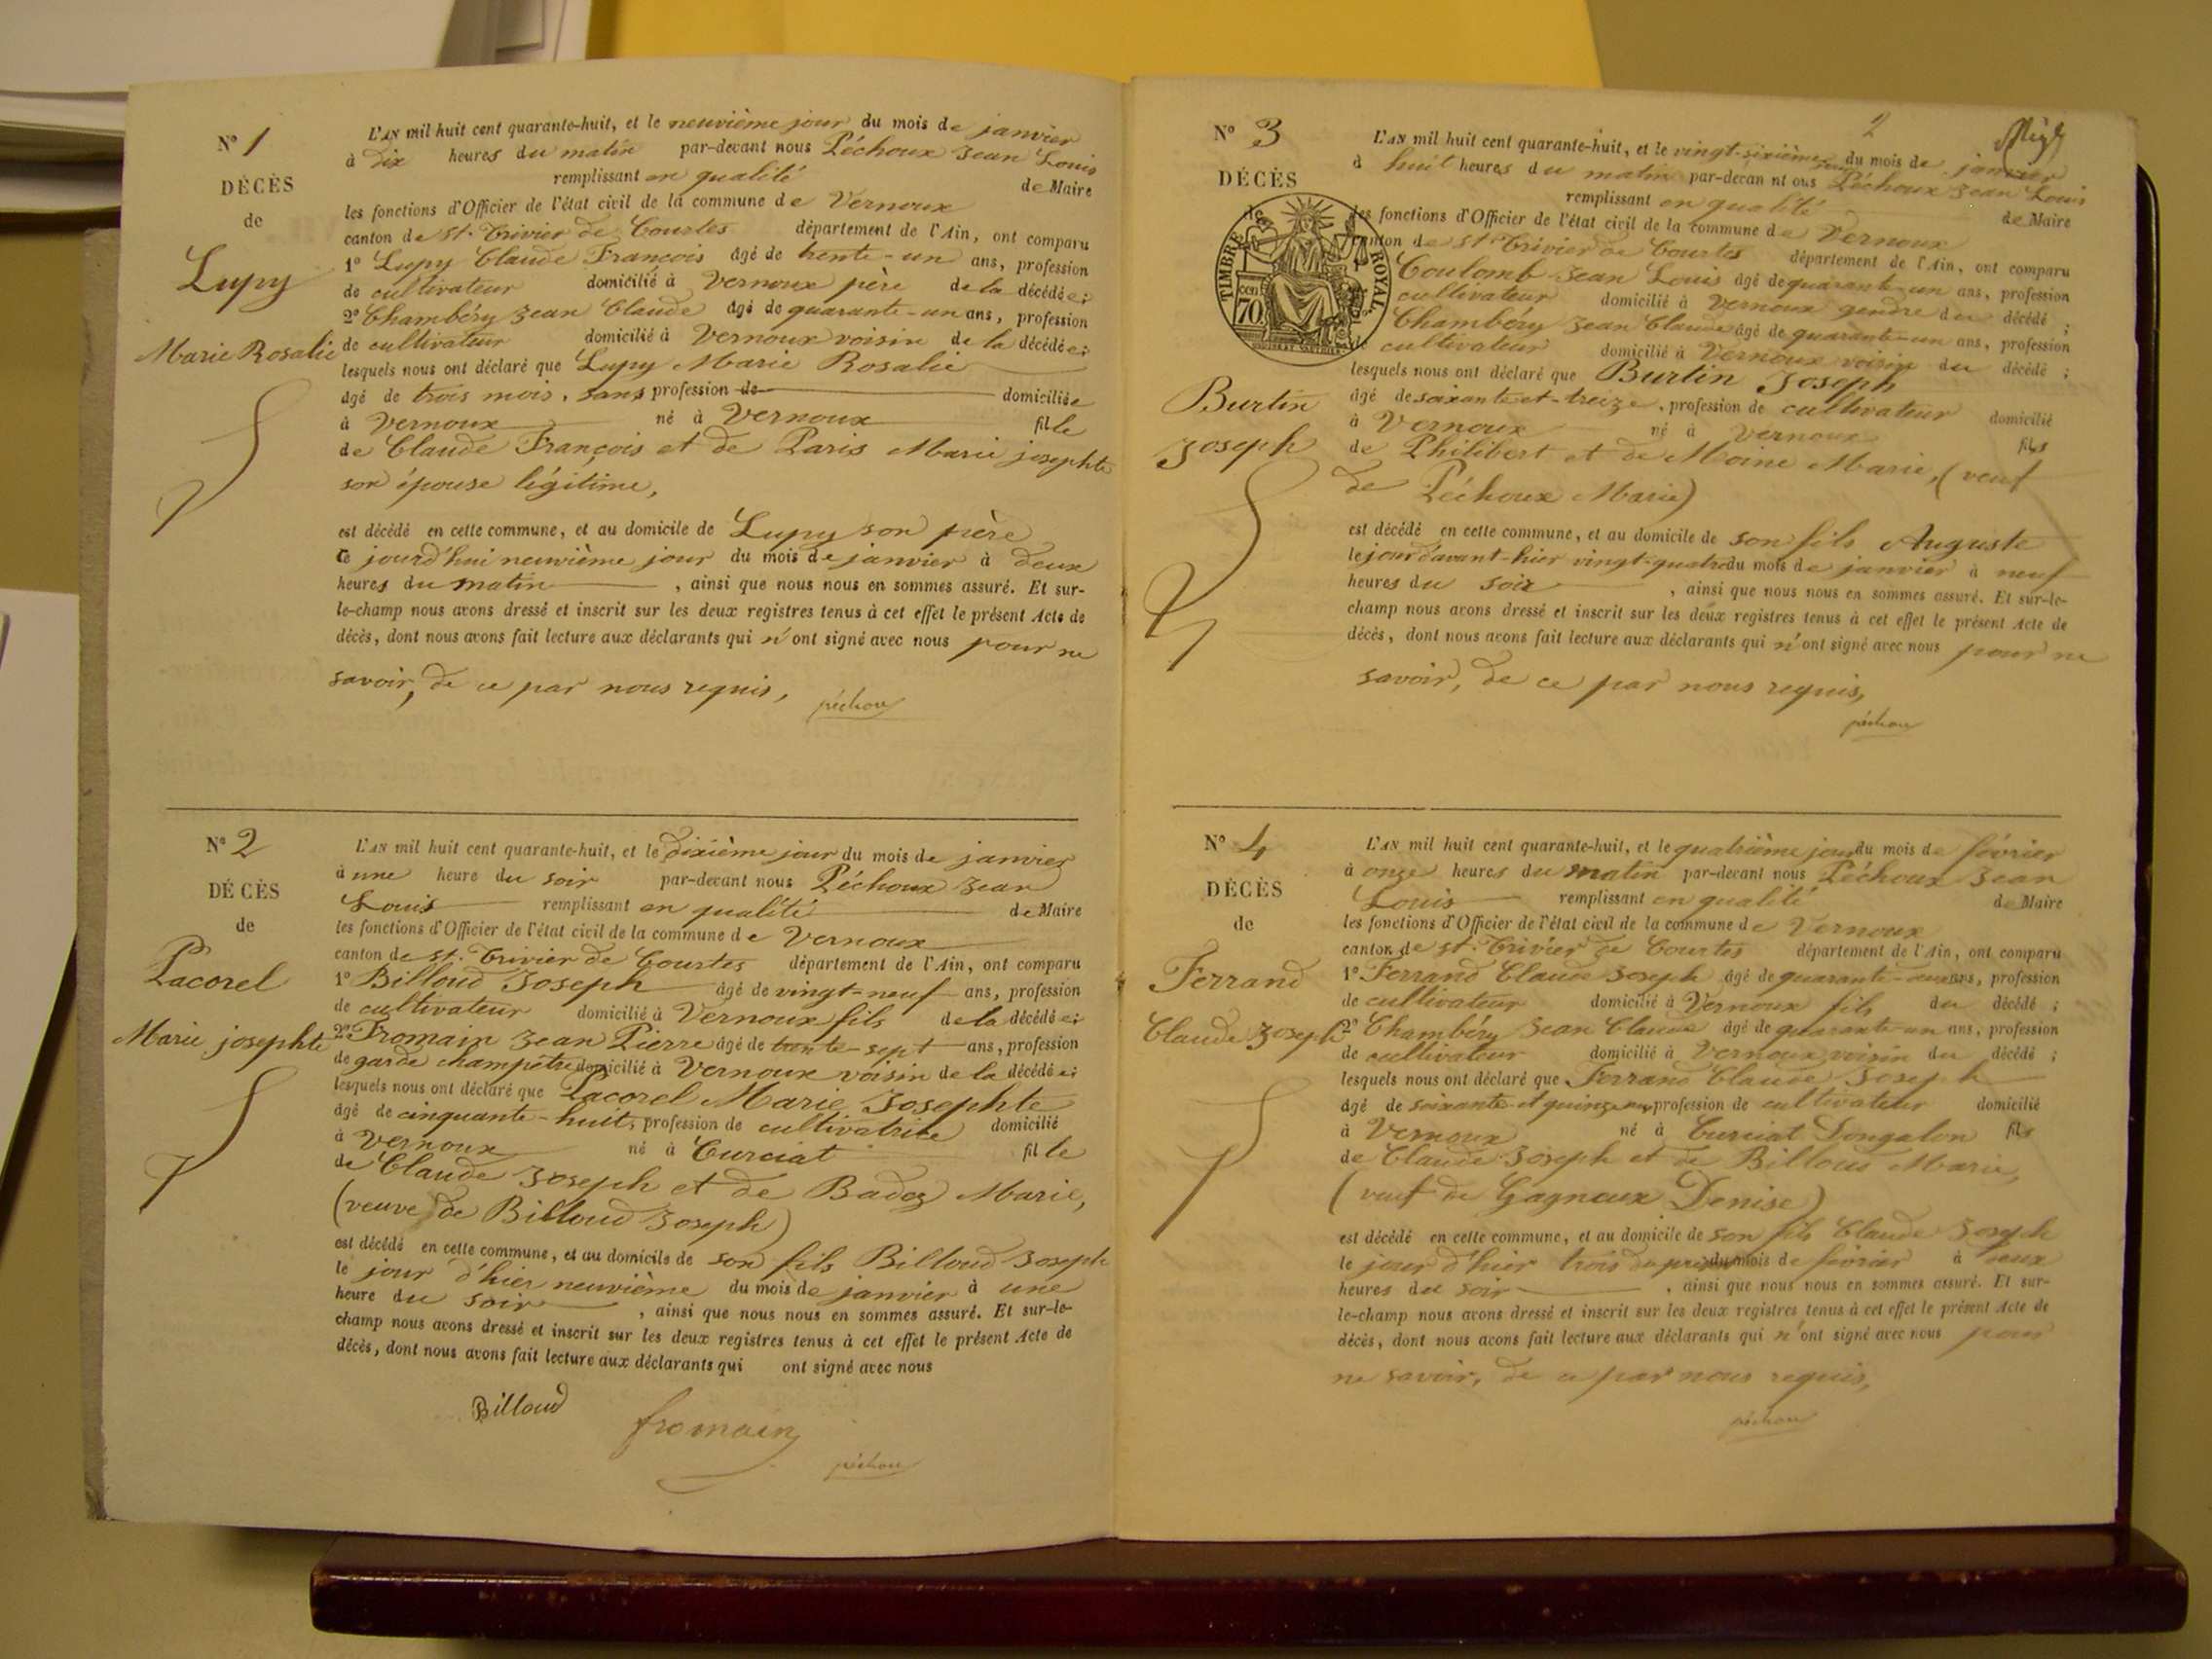 N° 1
DÉCÈS
de
Lupy
Marie Rosalie
L'AN mil huit cent quarante-huit, et le neuvième jour du mois de janvier
à dix heures du matin par-devant nous Péchoux Jean Louis
remplissant en qualité de Maire
les fonctions d'Officier de l'état civil de la commune de Vernoux
canton de St. Trivier de Courtes département de l'Ain, ont comparu
1° Lupy Claude François âgé de trente-un ans, profession
de cultivateur domicilié à Vernoux père de la décédée;
2° Chambéry Jean Claude âgé de quarante-un ans, profession
de cultivateur domicilié à Vernoux voisin de la décédée;
lesquels nous ont déclaré que Lupy Marie Rosalie
âgé de trois mois, sans profession de domiciliée
à Vernoux né à Vernoux fille
de Claude François et de Paris Marie josephte
son épouse légitime,
est décédé en cette commune, et au domicile de Lupy son père
ce jourd'hui neuvième jour du mois de janvier à deux
heures du matin, ainsi que nous nous en sommes assuré. Et sur-
le-champ nous avons dressé et inscrit sur les deux registres tenus à cet effet le présent Acte de
décès, dont nous avons fait lecture aux déclarants qui n'ont signé avec nous pour ne
savoir, de ce par nous requis,
péchoux
N° 2
DÉCÈS
de
Pacorel
Marie josephte
L'AN mil huit cent quarante-huit, et le dixième jour du mois de janvier
à une heure du soir par-devant nous Péchoux Jean
Louis remplissant en qualité de Maire
les fonctions d'Officier de l'état civil de la commune de Vernoux
canton de St. Trivier de Courtes département de l'Ain, ont comparu
1° Billoud Joseph âgé de vingt-neuf ans, profession
de cultivateur domicilié à Vernoux fils de la décédée;
2° Fromain Jean Pierre âgé de trente-sept ans, profession
de garde champêtre domicilié à Vernoux voisin de la décédée;
lesquels nous ont déclaré que Pacorel Marie Josephte
âgé de cinquante-huit, profession de cultivatrice domicilié
à Vernoux né à Curciat fille
de Claude Joseph et de Badez Marie,
(veuve de Billoud Joseph)
est décédé en cette commune, et au domicile de son fils Billoud Joseph
le jour d'hier neuvième du mois de janvier à une
heure du soir, ainsi que nous nous en sommes assuré. Et sur-le-
champ nous avons dressé et inscrit sur les deux registres tenus à cet effet le présent Acte de
décès, dont nous avons fait lecture aux déclarants qui ont signé avec nous
Billoud
fromain
péchoux
2
N° 3
DÉCÈS
de
TIMBRE ROYAL
70
Burtin
Joseph
L'AN mil huit cent quarante-huit, et le vingt-sixième jour du mois de janvier
à huit heures du matin par-devan nt ous Péchoux Jean Louis
remplissant en qualité de Maire
les fonctions d'Officier de l'état civil de la commune de Vernoux
canton de St. Trivier de Courtes département de l'Ain, ont comparu
Coulomb Jean Louis âgé de quarante-un ans, profession
cultivateur domicilié à Vernoux gendre du décédé;
Chambéry Jean Claude âgé de quarante-un ans, profession
de cultivateur domicilié à Vernoux voisin du décédé;
lesquels nous ont déclaré que Burtin Joseph
âgé de soixante et-treize, profession de cultivateur domicilié
à Vernoux né à Vernoux fils
de Philibert et de Moine Marie, (veuf
de Péchoux Marie)
est décédé en cette commune, et au domicile de son fils Auguste
le jour d'avant-hier vingt-quatre du mois de janvier à neuf
heures du soir, ainsi que nous nous en sommes assuré. Et sur-le-
champ nous avons dressé et inscrit sur les deux registres tenus à cet effet le présent Acte de
décès, dont nous avons fait lecture aux déclarants qui n'ont signé avec nous pour ne
savoir, de ce par nous requis,
péchoux
N° 4
DÉCÈS
de
Ferrand
Claude Joseph
L'AN mil huit cent quarante-huit, et le quatrième jour du mois de février
à onze heures du matin par-devant nous Péchoux Jean
Louis remplissant en qualité de Maire
les fonctions d'Officier de l'état civil de la commune de Vernoux
canton de St. Trivier de Courtes département de l'Ain, ont comparu
1° Ferrand Claude Joseph âgé de quarante- ans, profession
de cultivateur domicilié à Vernoux fils du décédé;
2° Chambéry Jean Claude âgé de quarante-un ans, profession
de cultivateur domicilié à Vernoux voisin du décédé;
lesquels nous ont déclaré que Ferrand Claude Joseph
âgé de soixante et quinze ans profession de cultivateur domicilié
à Vernoux né à Curciat Dongalon fils
de Claude Joseph et de Billoud Marie,
(veuf de Gagneux Denise)
est décédé en cette commune, et au domicile de son fils Claude Joseph
le jour d'hier trois du mois de février à deux
heures du soir, ainsi que nous nous en sommes assuré. Et sur-
le-champ nous avons dressé et inscrit sur les deux registres tenus à cet effet le présent Acte de
décès, dont nous avons fait lecture aux déclarants qui n'ont signé avec nous pour
ne savoir, de ce par nous requis,
péchoux